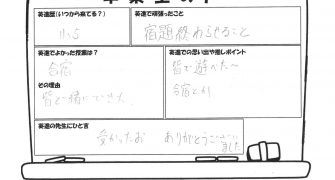 卒業生の声
英進歴(いつから来てる?)
小5
英進で頑張ったこと
宿題終わらせること
英進でよかった授業は?
合宿
その理由
皆と一緒にできた
英進での思い出や推しポイント
皆で遊べた〜
合宿とか
英進の先生にひと言
受かったお ありがとうございました